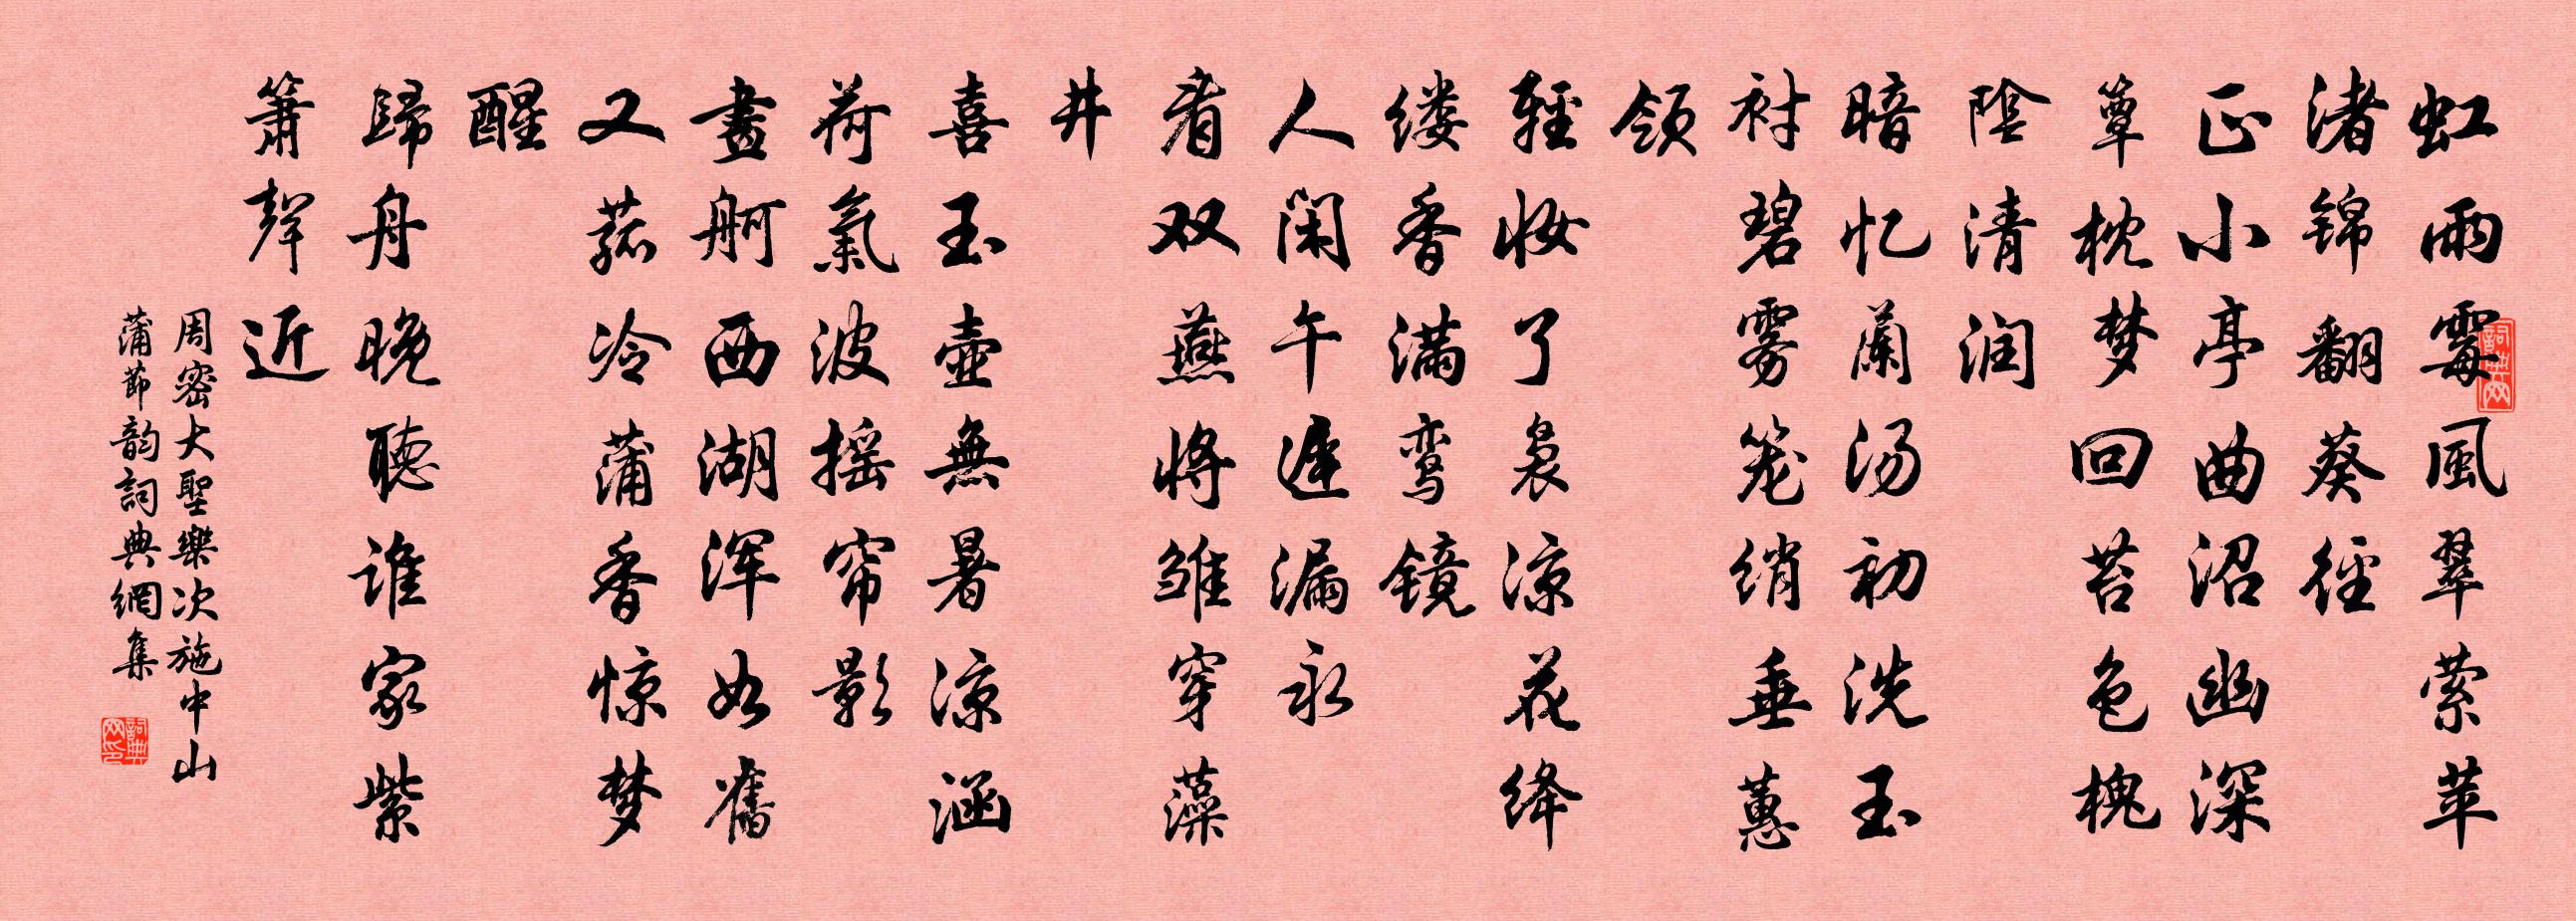 虹雨霉風翠萦苹
渚锦翻葵徑
正小亭曲沼幽深
簟枕梦回苔色槐
陰清润
暗忆蘭汤初洗玉
衬碧雾笼绡垂蕙
领
輕妆了裊凉花绛
缕香满鸾镜
人闲午迟漏永
看双燕将雏穿藻
井
喜玉壶無暑凉涵
荷氣波摇帘影
畫舸西湖浑如舊
又菰冷蒲香惊梦
醒
歸舟晚聽谁家紫
箫聲近
周密大聖樂次施中山
蒲節韵詞典網集
詞典网
詞典网印